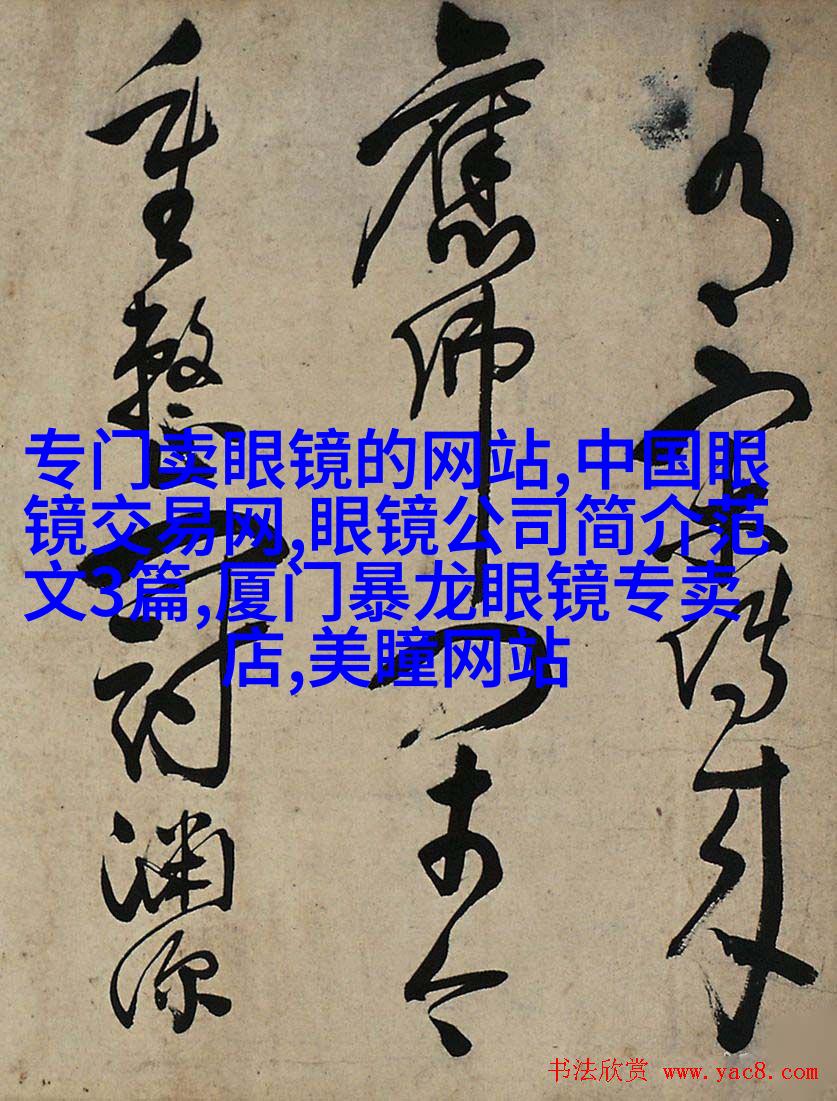 家傳
應 古今
重整 討淵源
专门卖眼镜的网站,中国眼
镜交易网,眼镜公司简介范
文3篇,厦门暴龙眼镜专卖
店,美瞳网站
书法欣赏 www.yac8.com